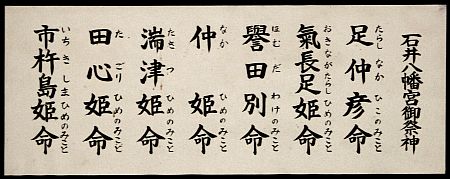 石井八幡宮御祭神
足仲彦命
たらし なか ひこのみこと
氣長足姫命
おきながたらしひめのみこと
譽田別命
ほむ だ わけのみこと
仲姫命
なか ひめのみこと
湍津姫命
たきつ ひめのみこと
田心姫命
た ごり ひめのみこと
市杵島姫命
いち き しま ひめのみこと